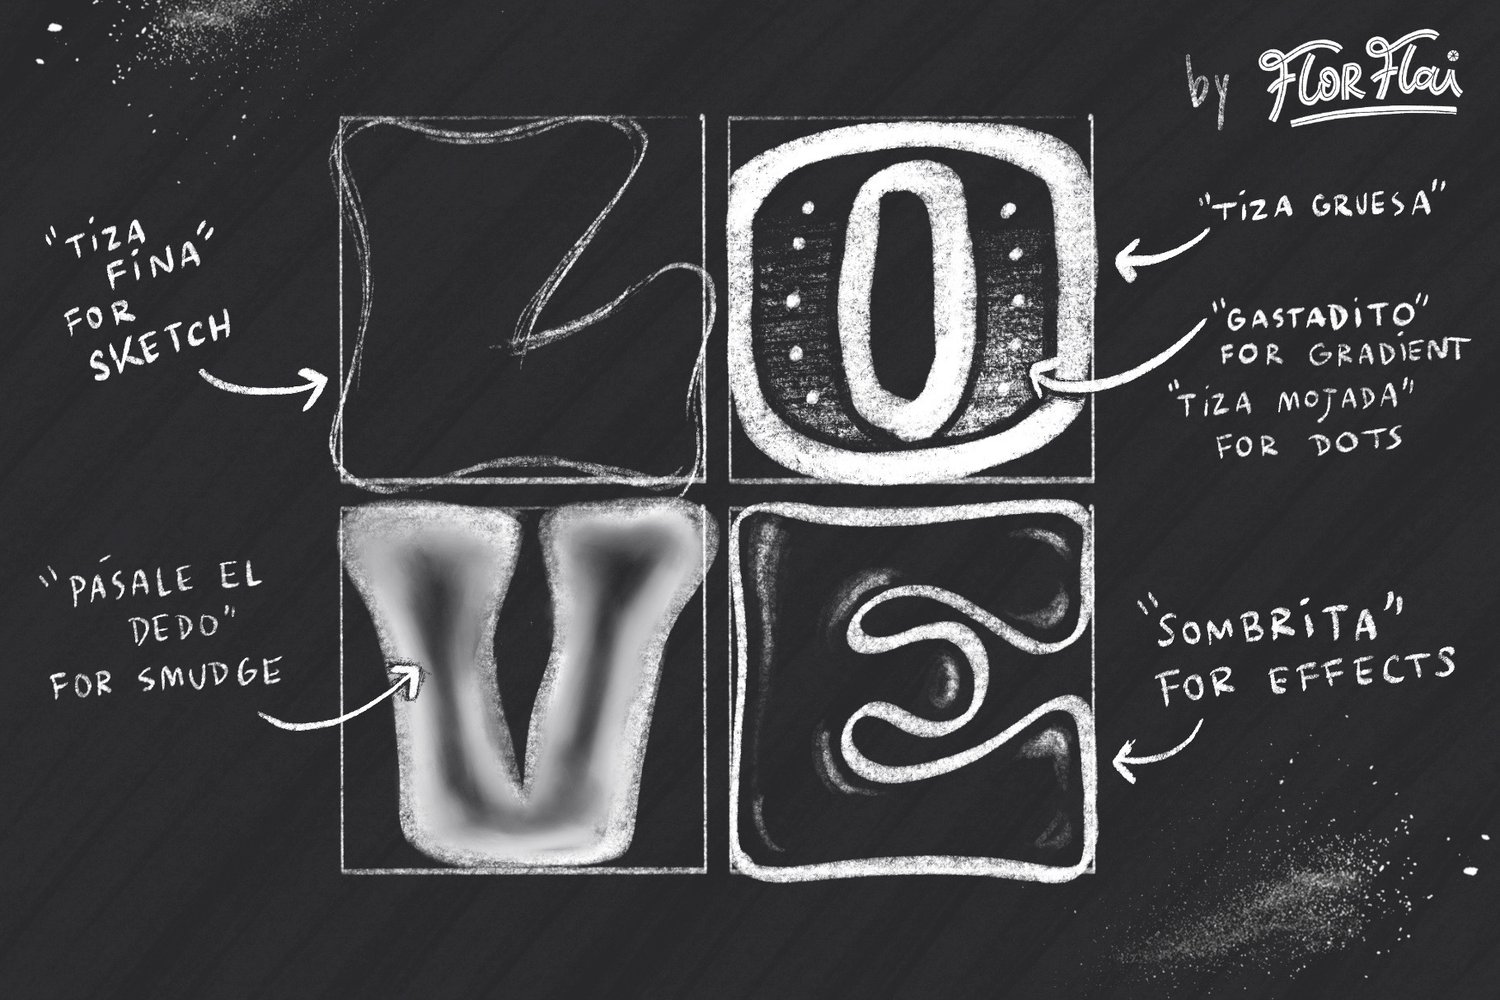 by FLOR FLai
"TiZA
FiNA"
FOR
SKETCH
L O
"TiZA GRUESA"
"GASTADiTO"
FOR GRADiENT
"TiZA MOJADA"
FOR DOTS
V E
"PÁSALE EL
DEDO"
FOR SMUDGE
"SOMBRiTA"
FOR EFFECTS